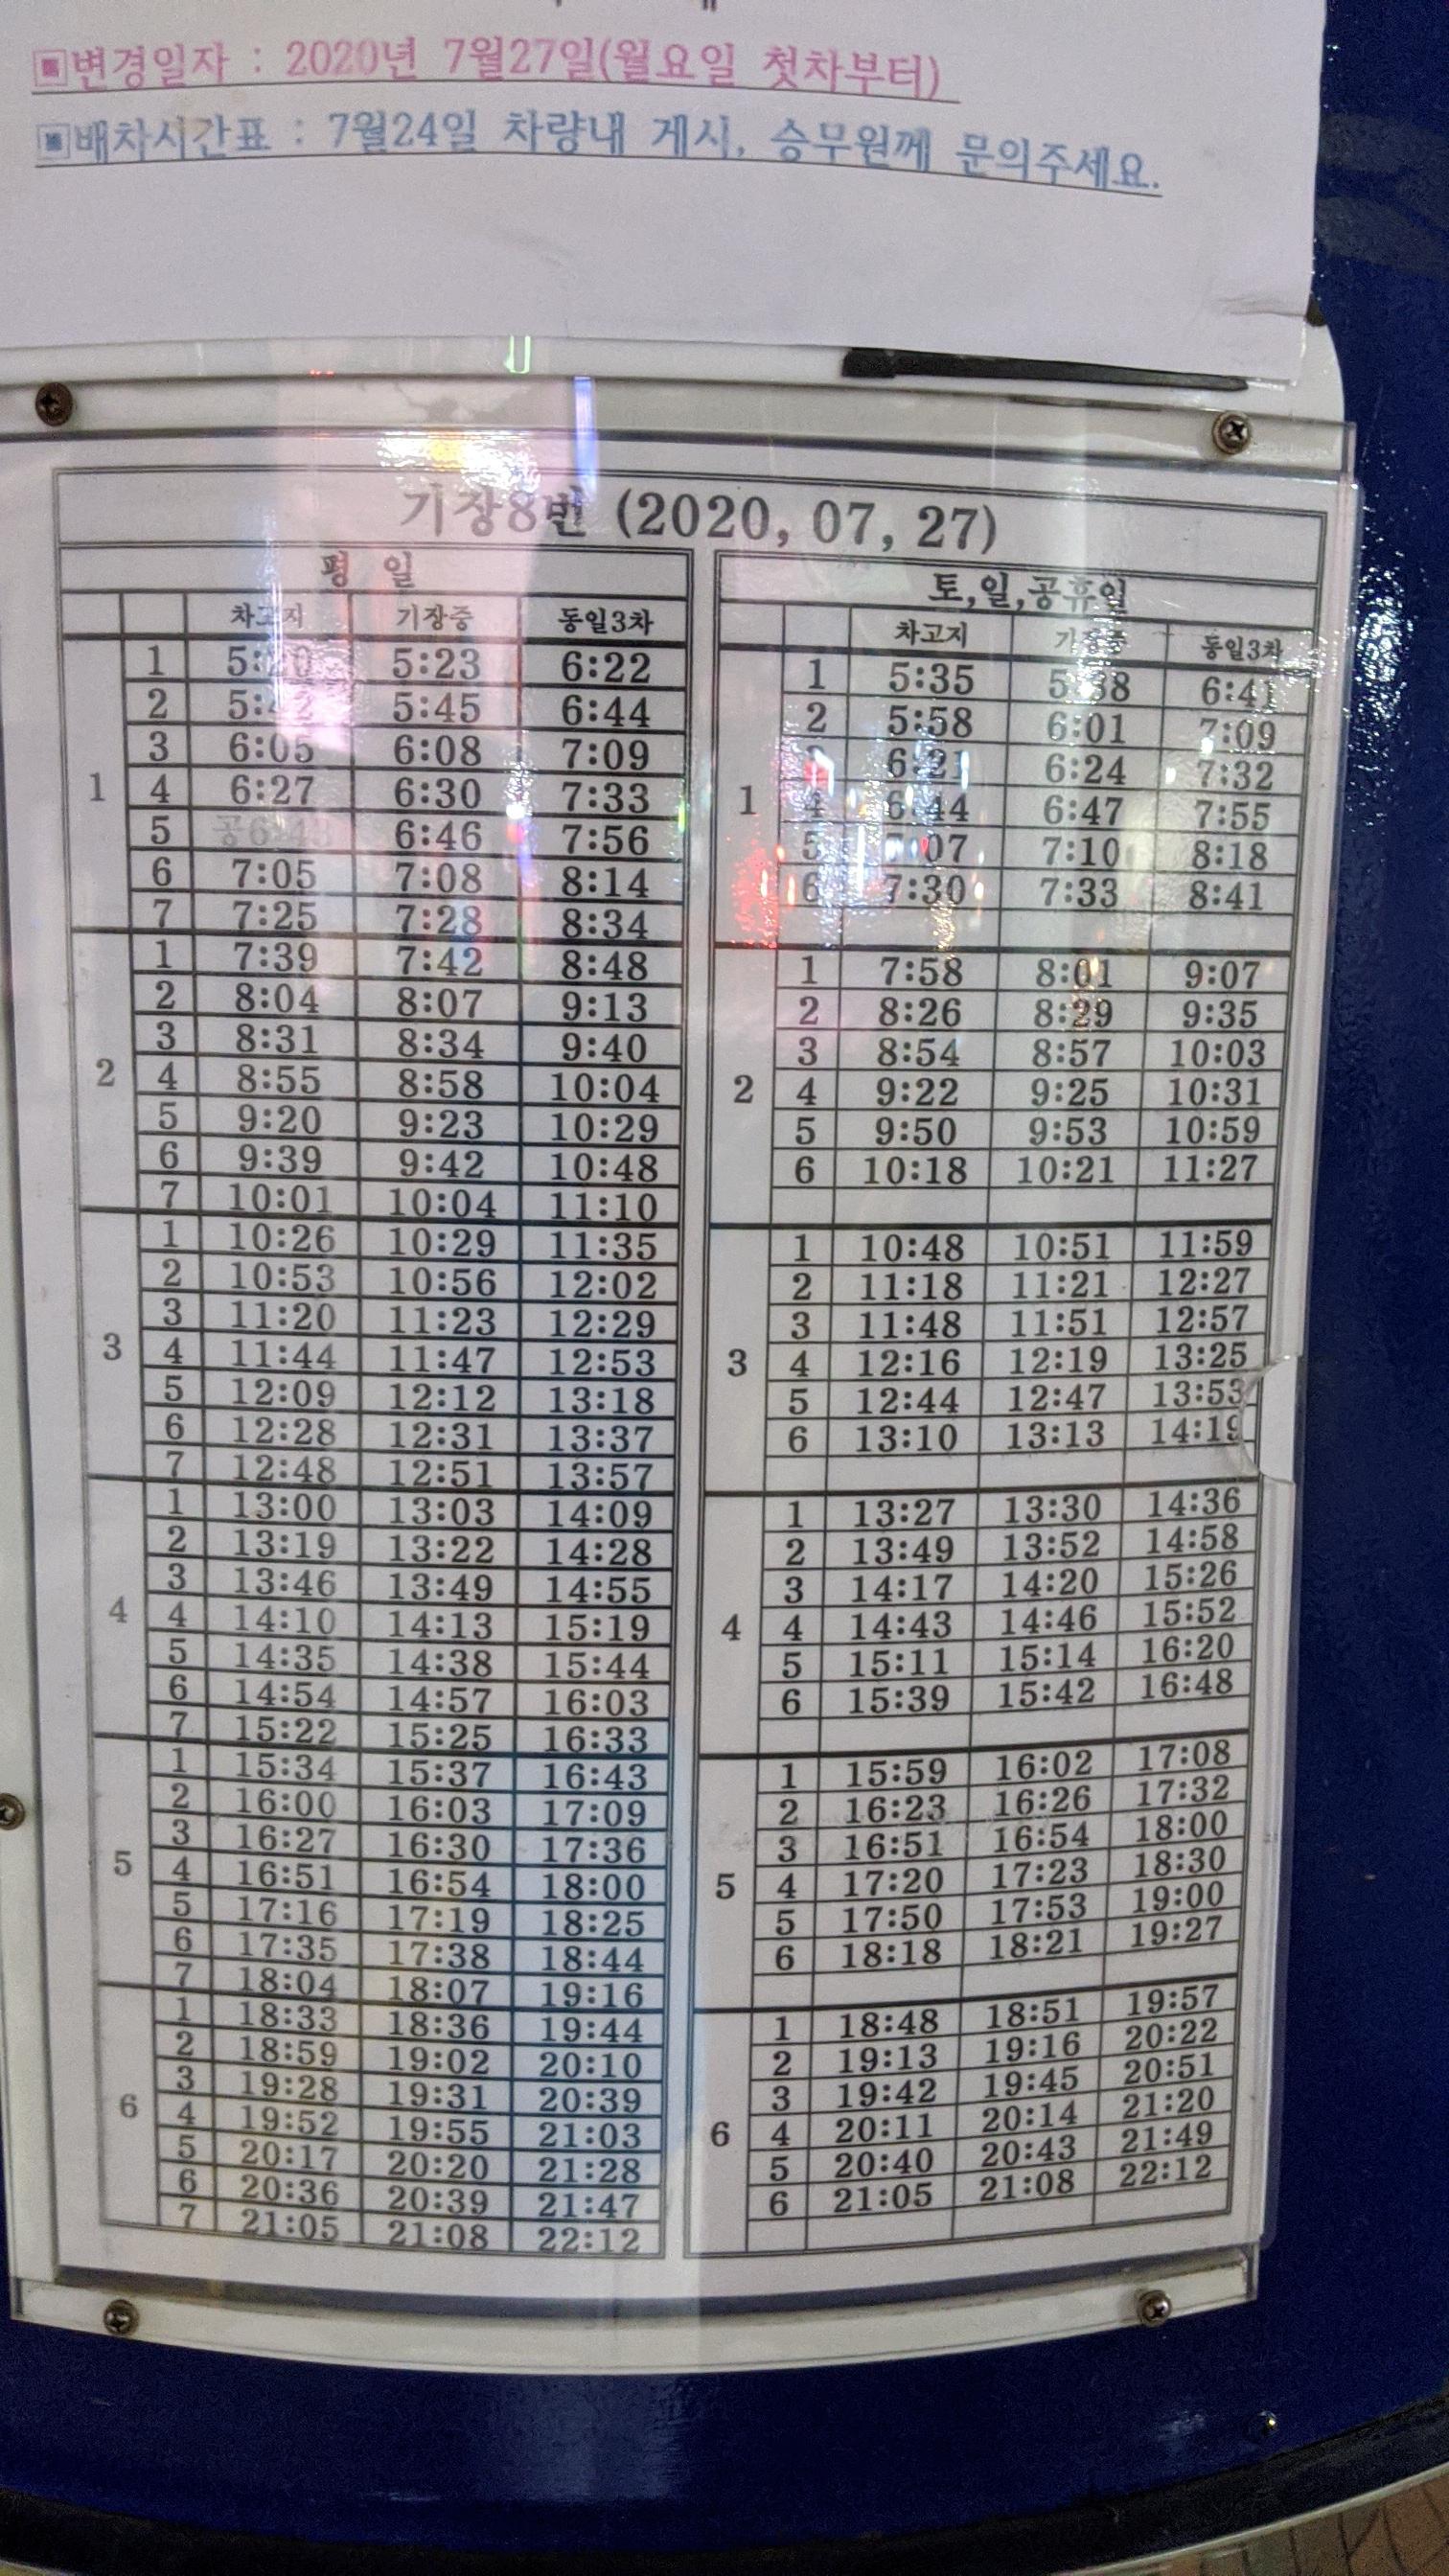 ▣변경일자 : 2020년 7월27일(월요일 첫차부터)
▣배차시간표 : 7월24일 차량내 게시, 승무원께 문의주세요.
기장8번 (2020, 07, 27)
평 일
차고지 기장중 동일3차
1
1 5:23 6:22
2 5:45 6:44
3 6:05 6:08 7:09
4 6:27 6:30 7:33
5 6:46 7:56
6 7:05 7:08 8:14
7 7:25 7:28 8:34
2
1 7:39 7:42 8:48
2 8:04 8:07 9:13
3 8:31 8:34 9:40
4 8:55 8:58 10:04
5 9:20 9:23 10:29
6 9:39 9:42 10:48
7 10:01 10:04 11:10
3
1 10:26 10:29 11:35
2 10:53 10:56 12:02
3 11:20 11:23 12:29
4 11:44 11:47 12:53
5 12:09 12:12 13:18
6 12:28 12:31 13:37
7 12:48 12:51 13:57
4
1 13:00 13:03 14:09
2 13:19 13:22 14:28
3 13:46 13:49 14:55
4 14:10 14:13 15:19
5 14:35 14:38 15:44
6 14:54 14:57 16:03
7 15:22 15:25 16:33
5
1 15:34 15:37 16:43
2 16:00 16:03 17:09
3 16:27 16:30 17:36
4 16:51 16:54 18:00
5 17:16 17:19 18:25
6 17:35 17:38 18:44
7 18:04 18:07 19:16
6
1 18:33 18:36 19:44
2 18:59 19:02 20:10
3 19:28 19:31 20:39
4 19:52 19:55 21:03
5 20:17 20:20 21:28
6 20:36 20:39 21:47
7 21:05 21:08 22:12
토,일,공휴일
차고지 기장중 동일3차
1
1 5:35 5:38 6:41
2 5:58 6:01 7:09
3 6:21 6:24 7:32
4 6:44 6:47 7:55
5 7:07 7:10 8:18
6 7:30 7:33 8:41
2
1 7:58 8:01 9:07
2 8:26 8:29 9:35
3 8:54 8:57 10:03
4 9:22 9:25 10:31
5 9:50 9:53 10:59
6 10:18 10:21 11:27
3
1 10:48 10:51 11:59
2 11:18 11:21 12:27
3 11:48 11:51 12:57
4 12:16 12:19 13:25
5 12:44 12:47 13:53
6 13:10 13:13 14:19
4
1 13:27 13:30 14:36
2 13:49 13:52 14:58
3 14:17 14:20 15:26
4 14:43 14:46 15:52
5 15:11 15:14 16:20
6 15:39 15:42 16:48
5
1 15:59 16:02 17:08
2 16:23 16:26 17:32
3 16:51 16:54 18:00
4 17:20 17:23 18:30
5 17:50 17:53 19:00
6 18:18 18:21 19:27
6
1 18:48 18:51 19:57
2 19:13 19:16 20:22
3 19:42 19:45 20:51
4 20:11 20:14 21:20
5 20:40 20:43 21:49
6 21:05 21:08 22:12